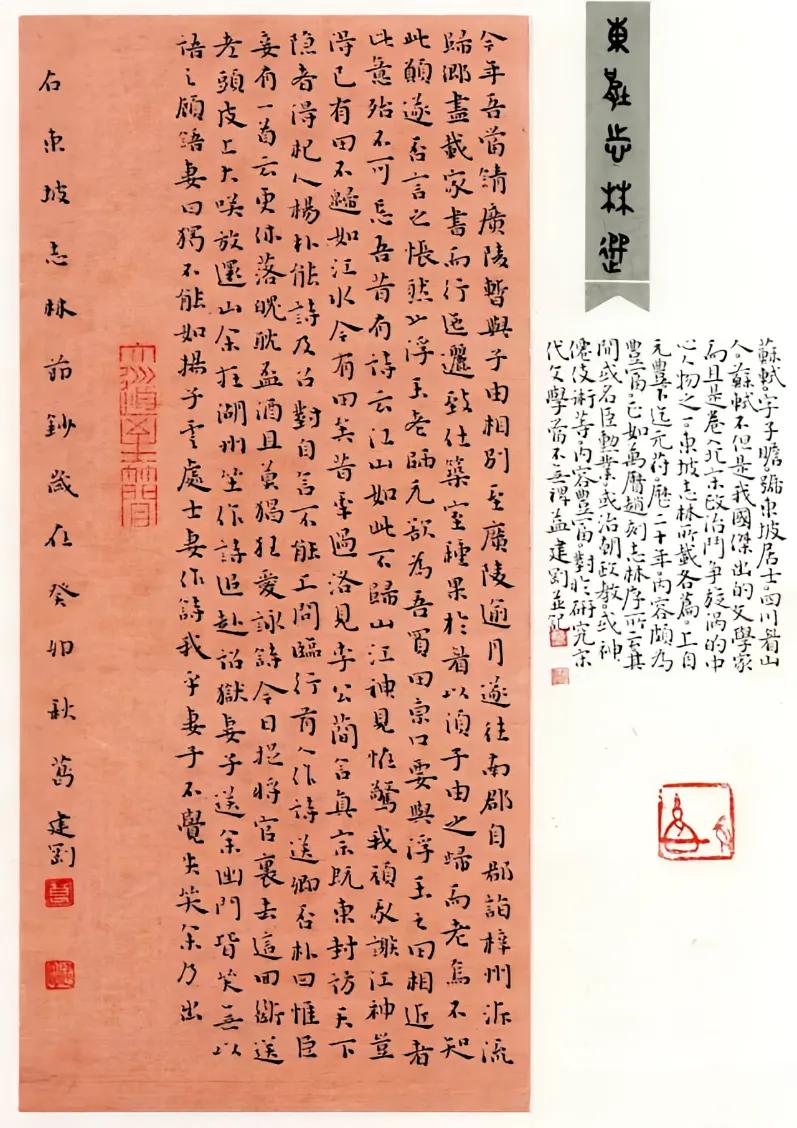 東坡志林選
今年吾當請廣陵暫與子由相別至廣陵逾月遂往南郡自郡詣梓州泝流
歸鄉盡載家書而行迤邐致仕築室種果於眉以須子由之歸而老焉不知
此願遂否言之悵然也浮玉老師元欲為吾買田京口要與浮玉之田相近者
此意殆不可忘吾昔有詩云江山如此不歸山江神見怪驚我頑我謝江神豈
得已有田不歸如江水今有田矣昔年過洛見李公簡言真宗既東封訪天下
隱者得杞人楊朴能詩及召對自言不能上問臨行有人作詩送卿否朴曰惟臣
妾有一首云更休落魄耽盃酒且莫猖狂愛詠詩今日捉將官裏去這回斷送
老頭皮上大咲放還山余在湖州坐作詩追赴詔獄妻子送余出門皆哭無以
語之顧語妻曰獨不能如揚子雲處士妻作詩我乎妻子不覺失笑余乃出
右東坡志林節鈔歲在癸卯秋葛建劉
蘇軾字子瞻號東坡居士四川眉山
人蘇軾不但是我國傑出的文學家
而且是卷入北宋政治鬥爭旋渦的中
心人物之一東坡志林所載各篇上自
元豐下迄元符歷二十年內容頗為
豐富正如萬曆趙刻志林序所云其
間或名臣勳業或治朝政教或神
僊伎術等內容豐富對於研究宋
代文學當不無裨益建劉並記